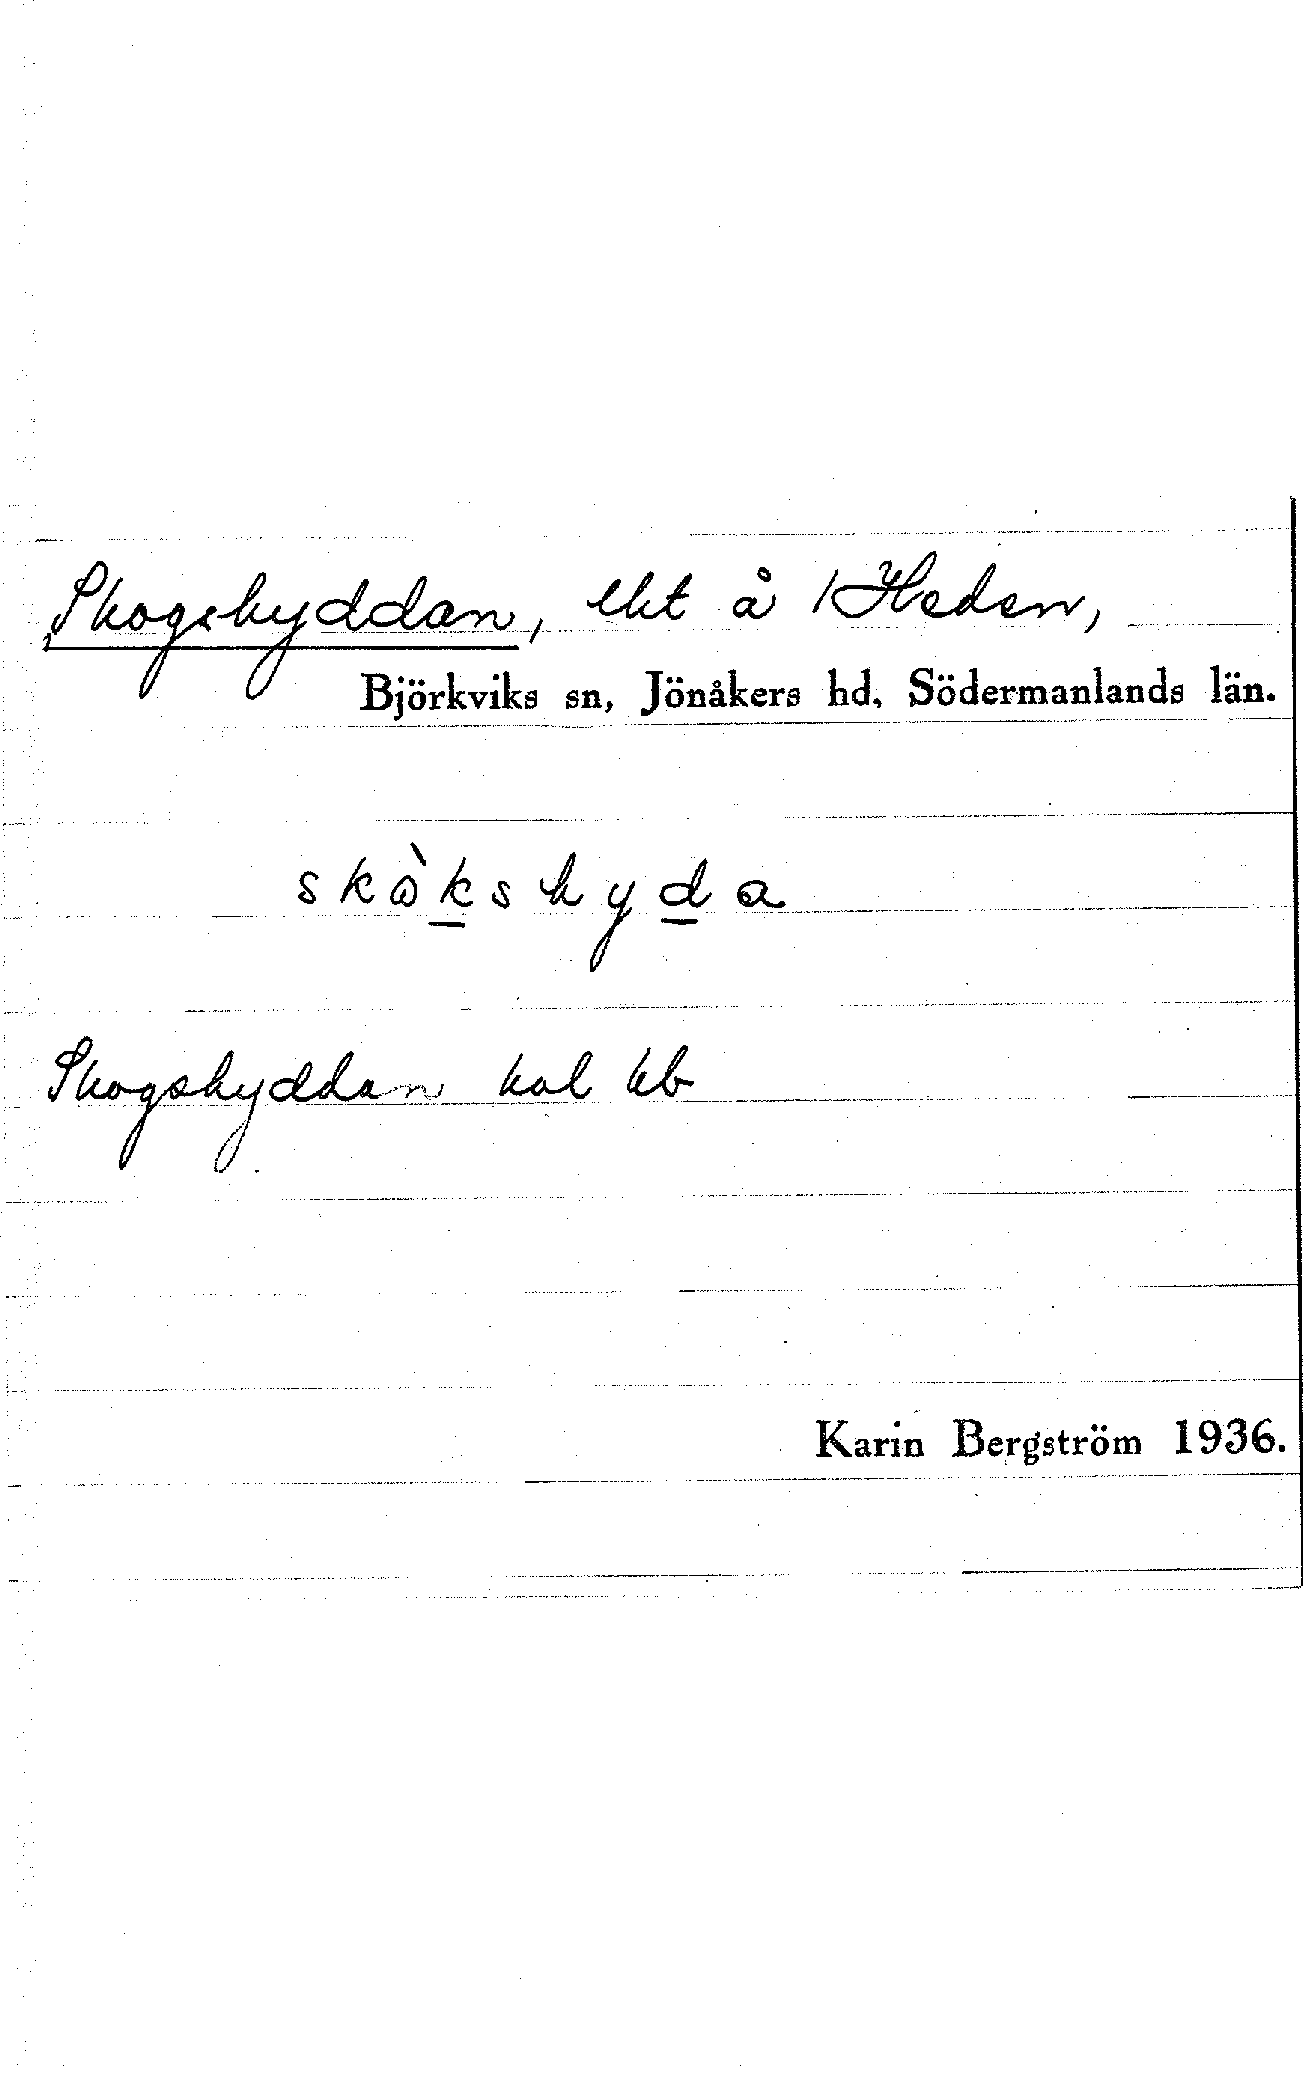 Skogshyddan, lht å 1 Heden,
Björkviks sn, Jönåkers hd, Södermanlands län.
skɷ̀kshyda
Skogshyddan hol kb
Karin Bergström 1936.